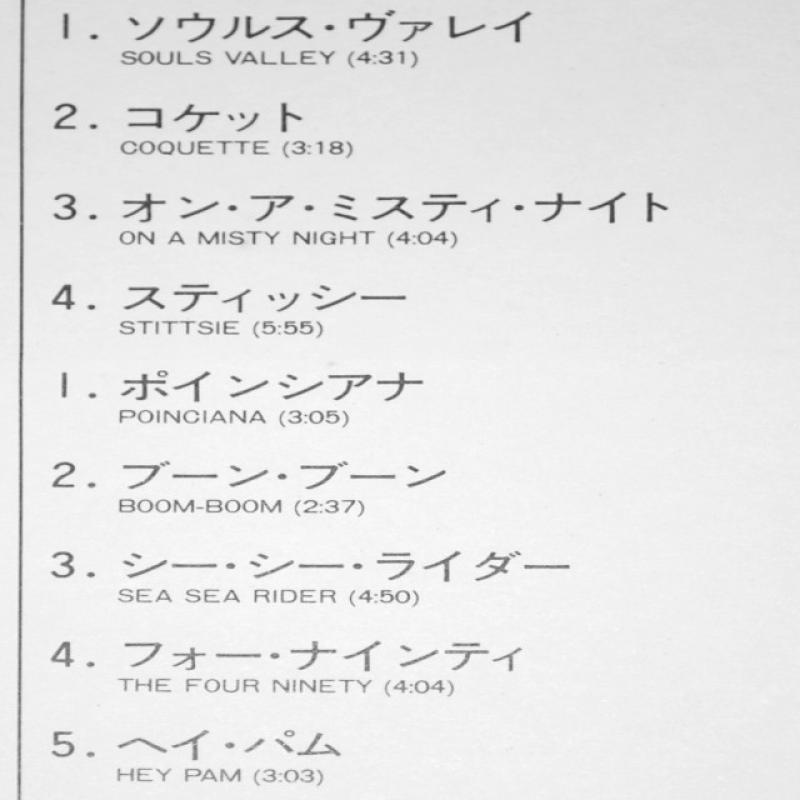 1. ソウルス・ヴァレイ
SOULS VALLEY (4:31)
2. コケット
COQUETTE (3:18)
3. オン・ア・ミスティ・ナイト
ON A MISTY NIGHT (4:04)
4. スティッシー
STITTSIE (5:55)
1. ポインシアナ
POINCIANA (3:05)
2. ブーン・ブーン
BOOM-BOOM (2:37)
3. シー・シー・ライダー
SEA SEA RIDER (4:50)
4. フォー・ナインティ
THE FOUR NINETY (4:04)
5. ヘイ・パム
HEY PAM (3:03)